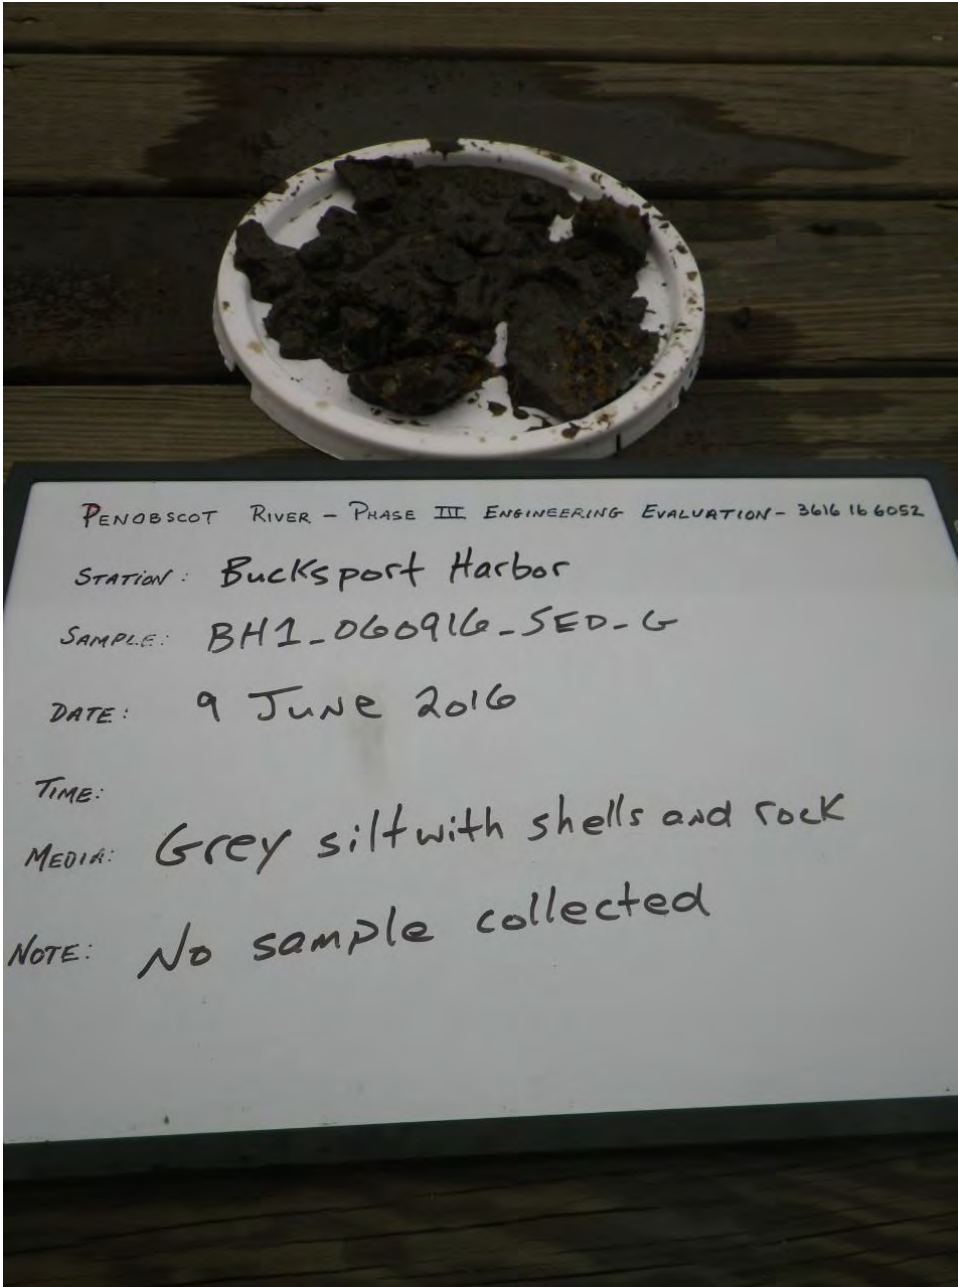 PENOBSCOT RIVER - PHASE III ENGINEERING EVALUATION - 3616 16 6052
STATION: Bucksport Harbor
SAMPLE: BH1_060916_SED_G
DATE: 9 June 2016
TIME:
MEDIA: Grey silt with shells and rock
NOTE: No sample collected